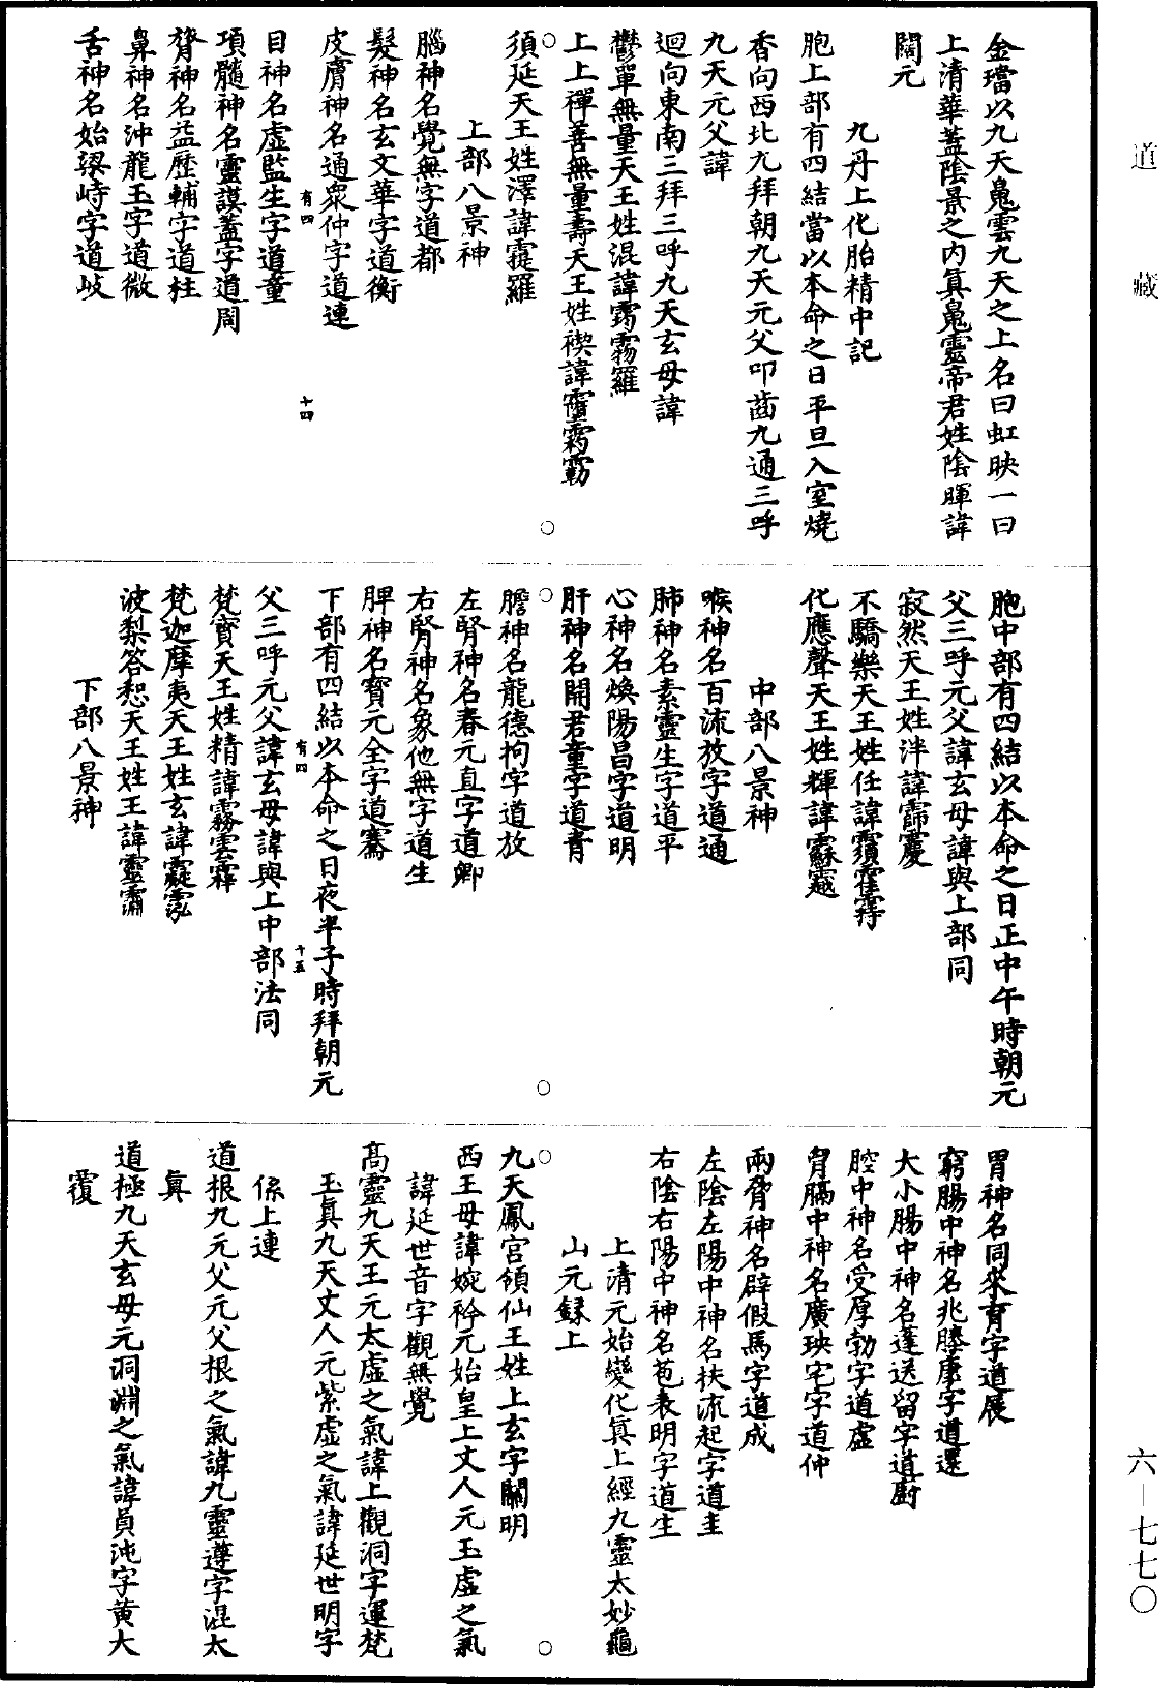 道藏
金璫以九天鳧雲九天之上名曰虹映一曰
上清華蓋陰景之內真鳧靈帝君姓陰暉諱
闓元
九丹上化胎精中記
胞上部有四結當以本命之日平旦入室燒
香向西北九拜朝九天元父叩齒九通三呼
九天元父諱
迴向東南三拜三呼九天玄母諱
鬱單無量天王姓混諱霧羅
上上禪善無量壽天王姓禊諱
須延天王姓澤諱霮羅
上部八景神
腦神名覺無字道都
髮神名玄文華字道衡
皮膚神名通衆仲字道連
有四 十四
目神名虛監生字道童
項髓神名靈謨蓋字道周
膂神名益歷輔字道柱
鼻神名沖龍玉字道微
舌神名始梁峙字道岐
胞中部有四結以本命之日正中午時朝元
父三呼元父諱玄母諱與上部同
寂然天王姓泮諱
不驕樂天王姓任諱
化應聲天王姓輝諱
中部八景神
喉神名百流放字道通
肺神名素靈生字道平
心神名煥陽昌字道明
肝神名開君童字道青
膽神名龍德拘字道放
左腎神名春元直字道卿
右腎神名象他無字道生
脾神名寶元全字道騫
下部有四結以本命之日夜半子時拜朝元
有四 十五
父三呼元父諱玄母諱與上中部法同
梵寶天王姓精諱霧雲霏
梵迦摩夷天王姓玄諱
波梨答恕天王姓王諱靈
下部八景神
胃神名同來育字道展
窮腸中神名兆滕康字道還
大小腸中神名蓬送留字道廚
腔中神名受厚勃字道虛
胷膈中神名廣瑛宅字道仲
兩脅神名辟假馬字道成
左陰左陽中神名扶流起字道圭
右陰右陽中神名苞表明字道生
上清元始變化眞上經九靈太妙龜
山元錄上
九天鳳宮領仙王姓上玄字關明
西王母諱婉衿元始皇上丈人元玉虛之氣
諱延世音字觀無覺
高靈九天王元太虛之氣諱上觀洞字運梵
玉眞九天丈人元紫虛之氣諱延世明字
係上連
道根九元父元父根之氣諱九靈遵字混太
眞
道極九天玄母元洞淵之氣諱員沌字黃大
覆
六—七七〇